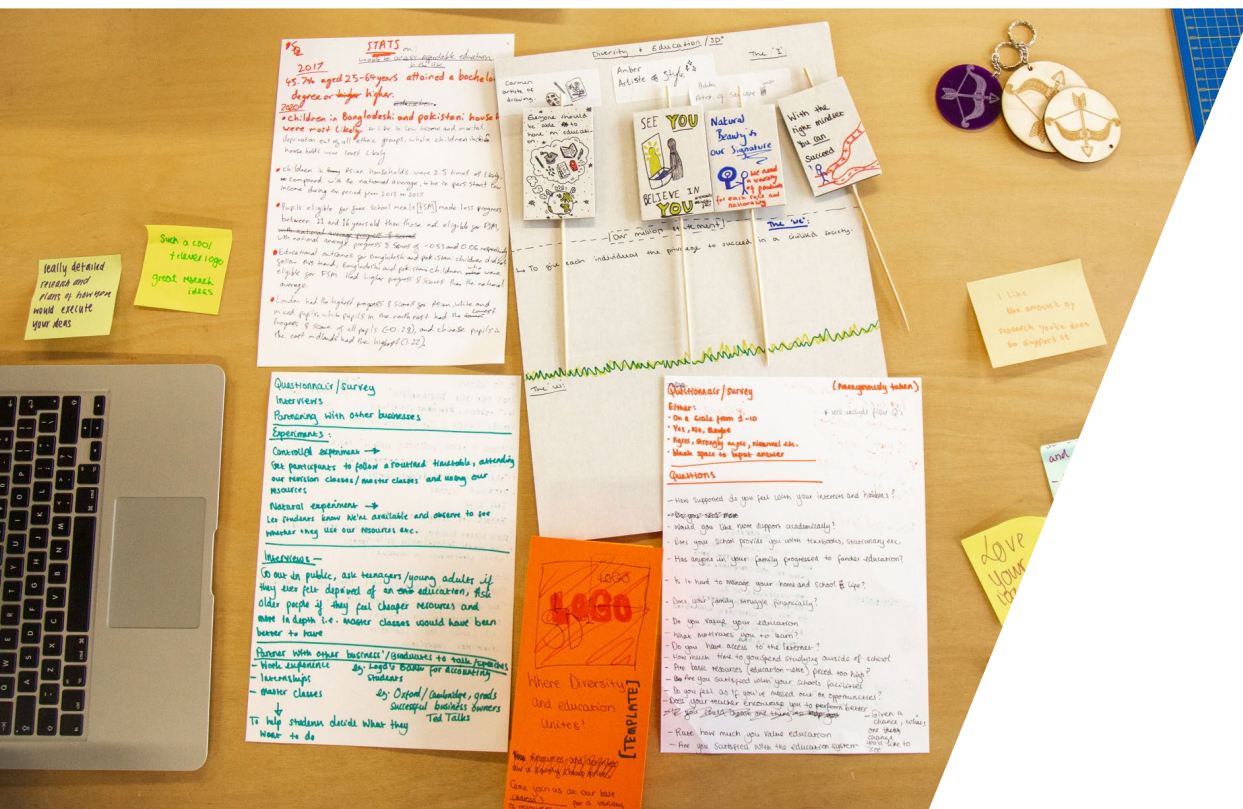 STATS on:
2017
45.7% aged 25-64 years attained a bachelo
degree or higher.
2020
• children in Bangladeshi and pakistani house
were most likely to be in low income and
deprivation out of all ethnic groups, while children
households were least likely
• children in Asian households were 2.5 times
compared with the national average, to be in persistent low
income during the period from
• Pupils eligible for free school meals [FSM] made less progress
between 11 and 16 years old than those not eligible for FSM,
with national average progress 8 scores of -0.53 and 0.06
• Educational outcomes for Bangladeshi and pakistani children
follow this trend; Bangladeshi and pakistani children who were
eligible for FSM had higher progress 8 scores than the national
average.
• London had the highest progress 8 scores for Asian, white and
mixed pupils, while pupils in the north east had the lowest
Progress 8 score of all pupils (-0.28), and chinese pupils in
the east midlands had the highest
Diversity + Education / SD
The 'I':
Carmen
artiste of
drawing.
Amber
Artiste of Style
Everyone should
be able to
have an educati-
on!
SEE YOU
BELIEVE IN
YOU
Natural
Beauty is
our Signature
We need
a variety
of products
for each race and
nationality
With the
right mindset
You can
Succeed
[Our mission statement]
The 'we':
↳ To give each individual the privilege to succeed in a civilised society.
The 'Wi'
Such a cool
+ clever logo
great research
ideas
really detailed
research and
plans of how
would execute
your ideas
I like
the amount of
research you've done
to support it
and
Love
your
Questionnair/survey
Interviews
Partnering with other businesses
Experiments:
Controlled experiment →
Get participants to follow a routined timetable, attending
our revision classes/master classes and using our
resources
Natural experiment →
Let students know we're available and observe to see
whether they use our resources etc.
Interviews —
Go out in public, ask teenagers/young adults if
they ever felt deprived of an education, Ask
older people if they feel cheaper resources and
more in depth i.e. master classes would have been
better to have
Partner with other business'/Graduates to talk/speeches
- Work experience eg. Loyd's Bank for accounting
- Internships students
- master classes eg. Oxford/Cambridge, grads
Successful business owners
↓ Ted Talks
To help students decide what they
want to do
LOGO
LOGO
Where Diversity
and education
Unites!
[TEMPLATE]
Come join us at our base
for a variety
Questionnair/survey (Anonymously taken)
Either:
• On a scale from 1-10
• Yes, No, Maybe
• Agree, strongly agree, etc.
• blank space to input answer
Questions
- How supported do you feel with your interests and hobbies?
- Would you like more support academically?
- Does your school provide you with textbooks, stationary etc.
- Has anyone in your family progressed to further education?
- Is it hard to manage your home and school life?
- Does your family struggle financially?
- Do you value your education
- What motivates you to learn?
- Do you have access to the Internet?
- How much time do you spend studying outside of school
- Are basic resources (education-wise) priced too high?
- Are you satisfied with your schools facilities
- Do you feel as if you've missed out on opportunities?
- Does your teacher encourage you to perform better
- Given a
chance, what's
one thing
you'd like to
see
- Rate how much you value education
- Are you satisfied with the education system